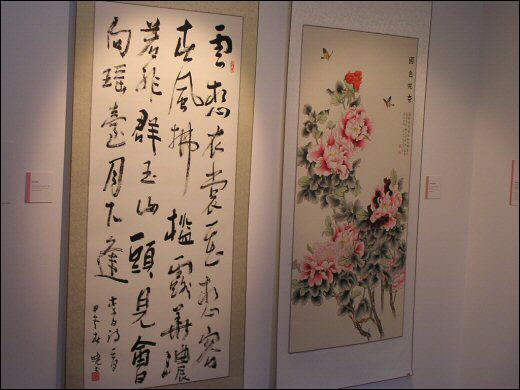 雲想衣裳花想容
春風拂檻露華濃
若非群玉山頭見會
向瑶臺月下逢
李白詩一首
國色天香